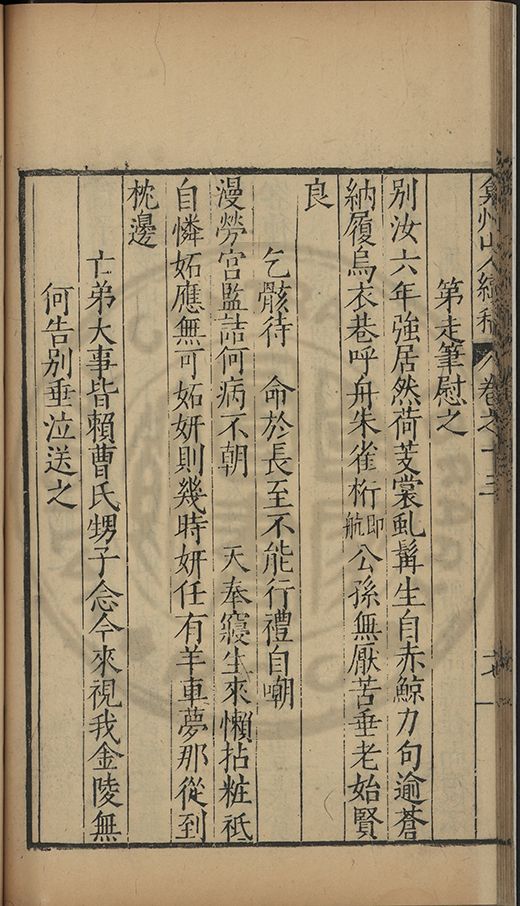 弇州山人續稿 卷之十三
第走筆慰之
別汝六年強居然荷芰裳虬髯生自赤鯨力句逾蒼
納履烏衣巷呼舟朱雀桁即航公孫無厭苦垂老始賢
良
乞骸待 命於長至不能行禮自嘲
漫勞宮監詰何病不朝 天奉寢生來懶拈粧祗
自憐妬應無可妬妍則幾時妍任有羊車夢那從到
枕邊
亡弟大事皆賴曹氏甥子念今來視我金陵無
何告別垂泣送之